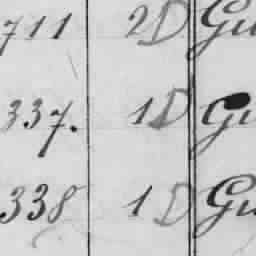 711 2D Gu
337. 1D Gu
338 1D Gu